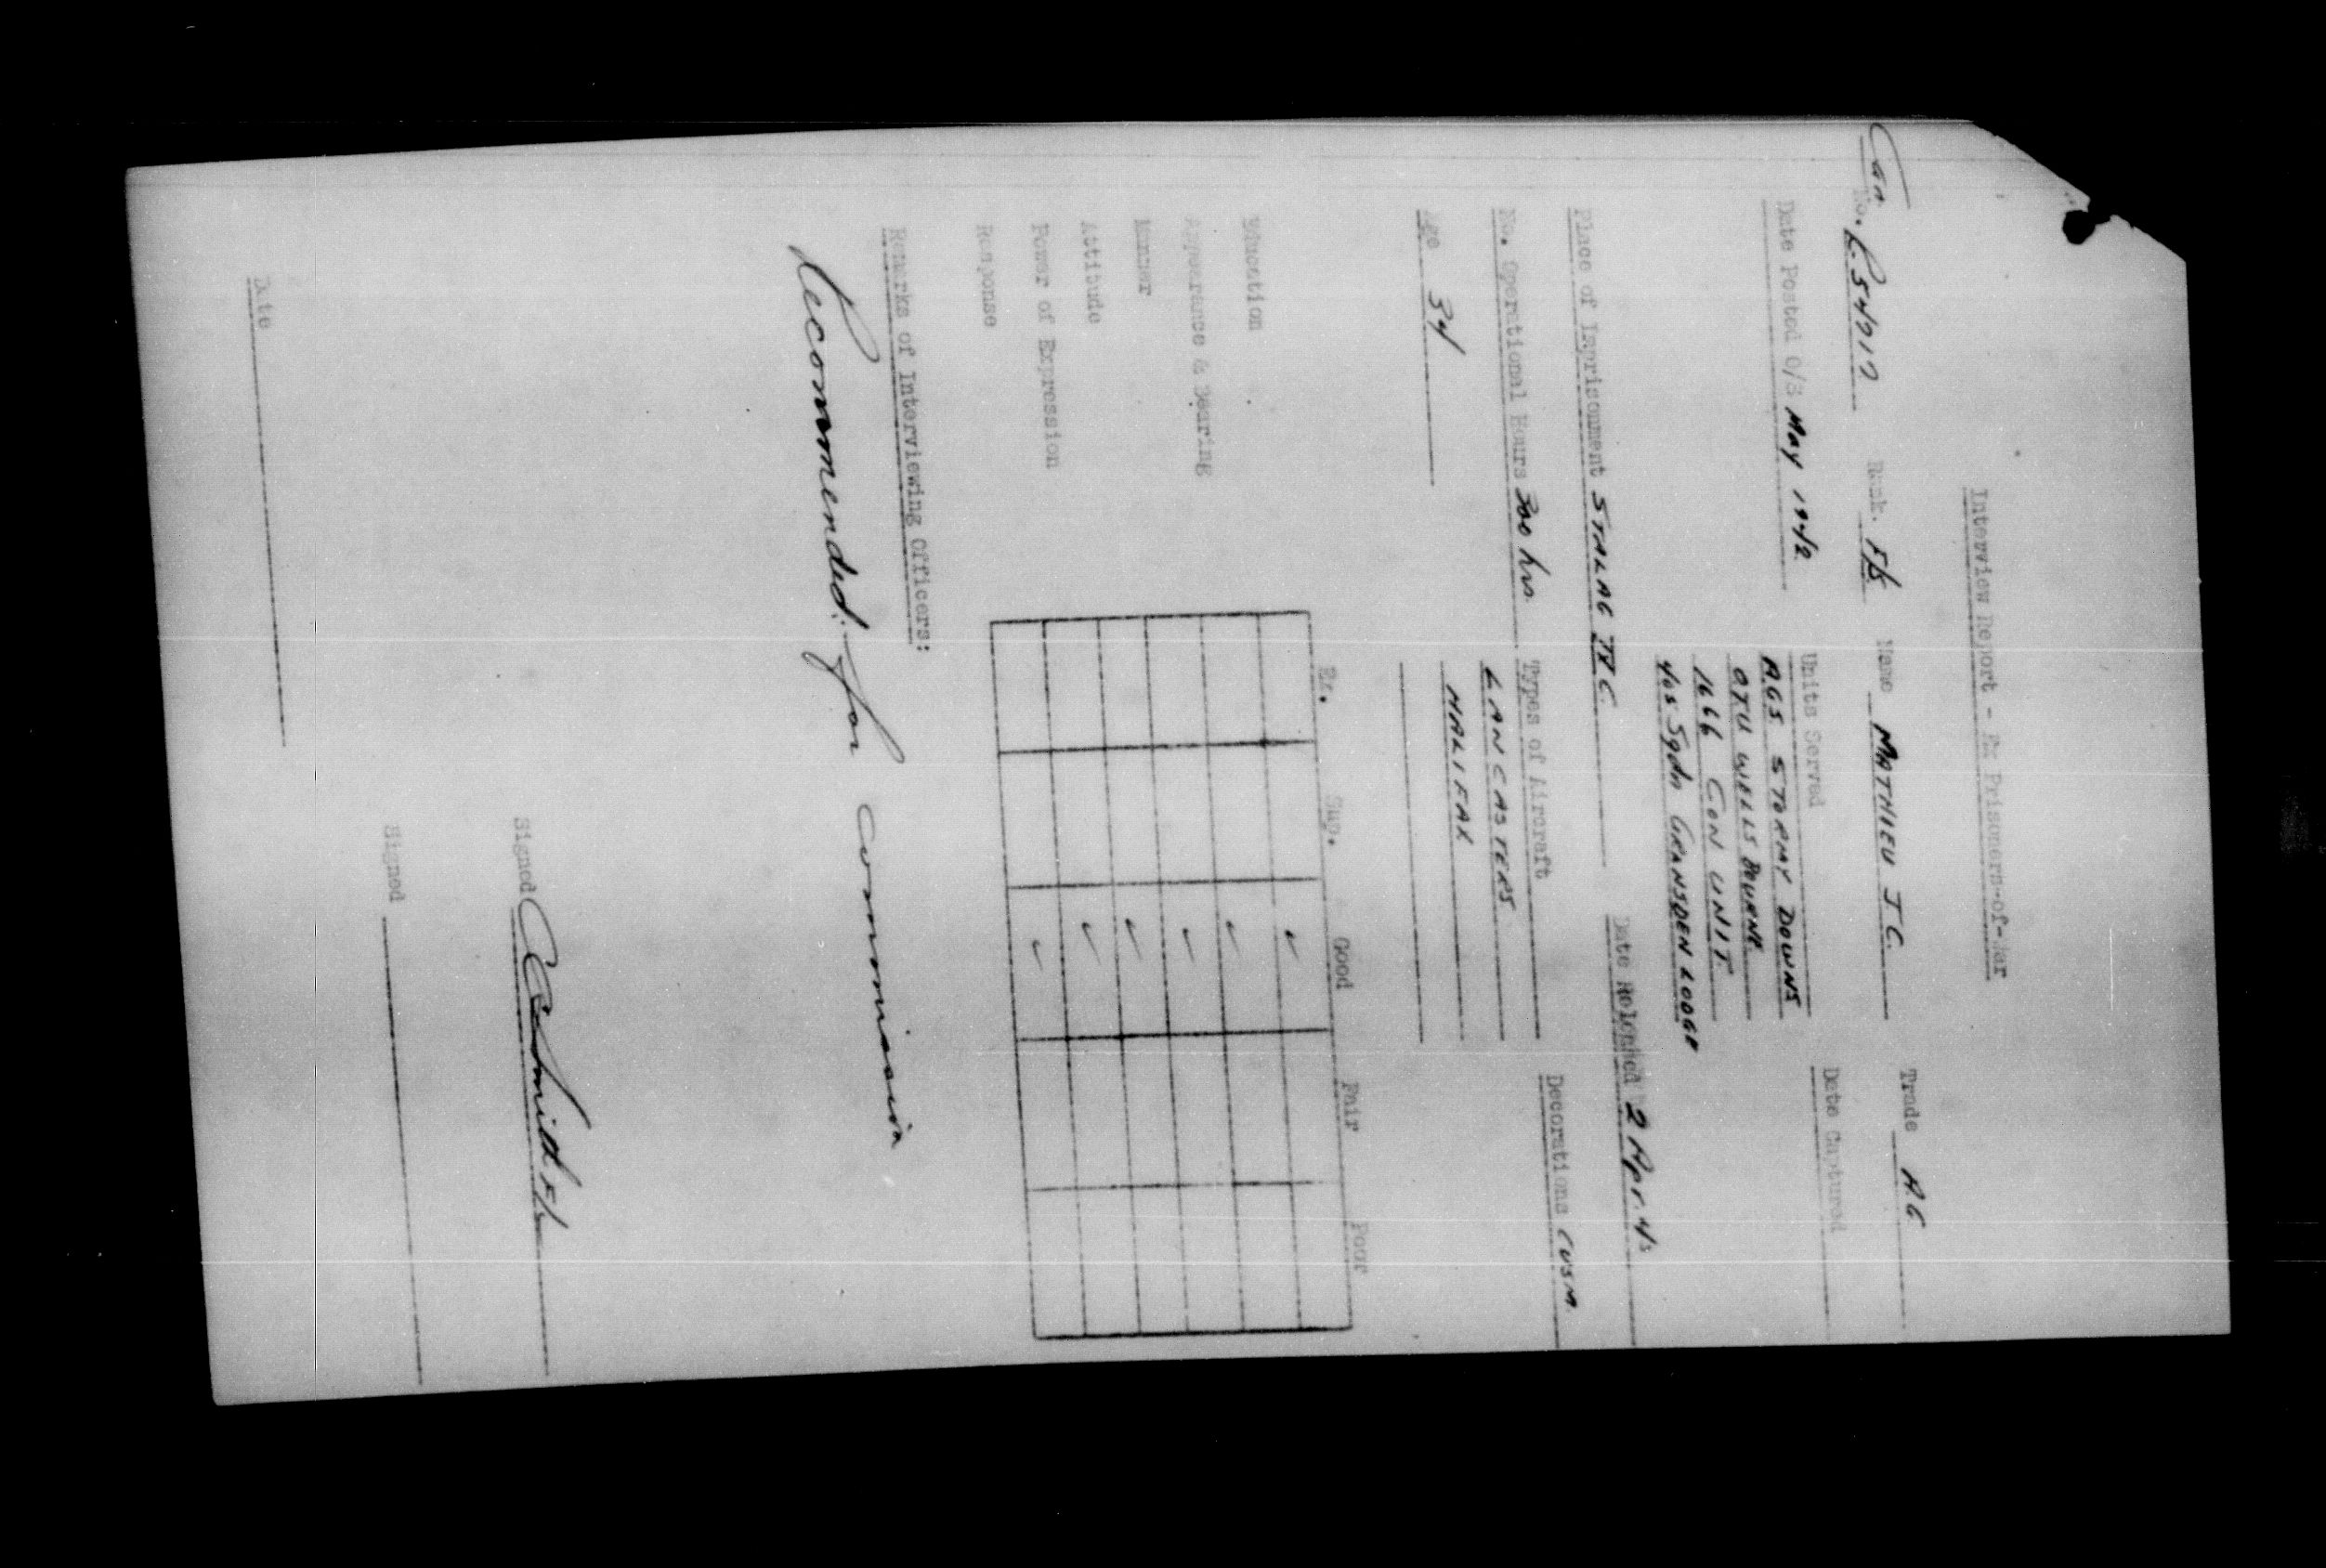 Interview Report - Ex Prisoners-of-War
Can
No. R.54917 Rank. F/S Name MATHIEU J C. Trade A.G
Date Posted O/S May 1942 Units Served Date Captured
AGS STORMY DOWNS
OTU WELLSBOURNE
1666 CON UNIT.
405 Sqdn GRANSDEN LODGE
Place of Imprisonment STALAG IX C. Date Released 2 Apr. 45
No. Operational Hours 300 hrs Types of Aircraft Decorations CVSM.
LANCASTERS
Age 34 HALIFAX
Ex. Sup. Good Fair Poor
Education ✓
Appearance & Bearing ✓
Manner ✓
Attitude ✓
Power of Expression ✓
Response ✓
Remarks of Interviewing Officers:
Recommended for commission
Signed
Signed
Date